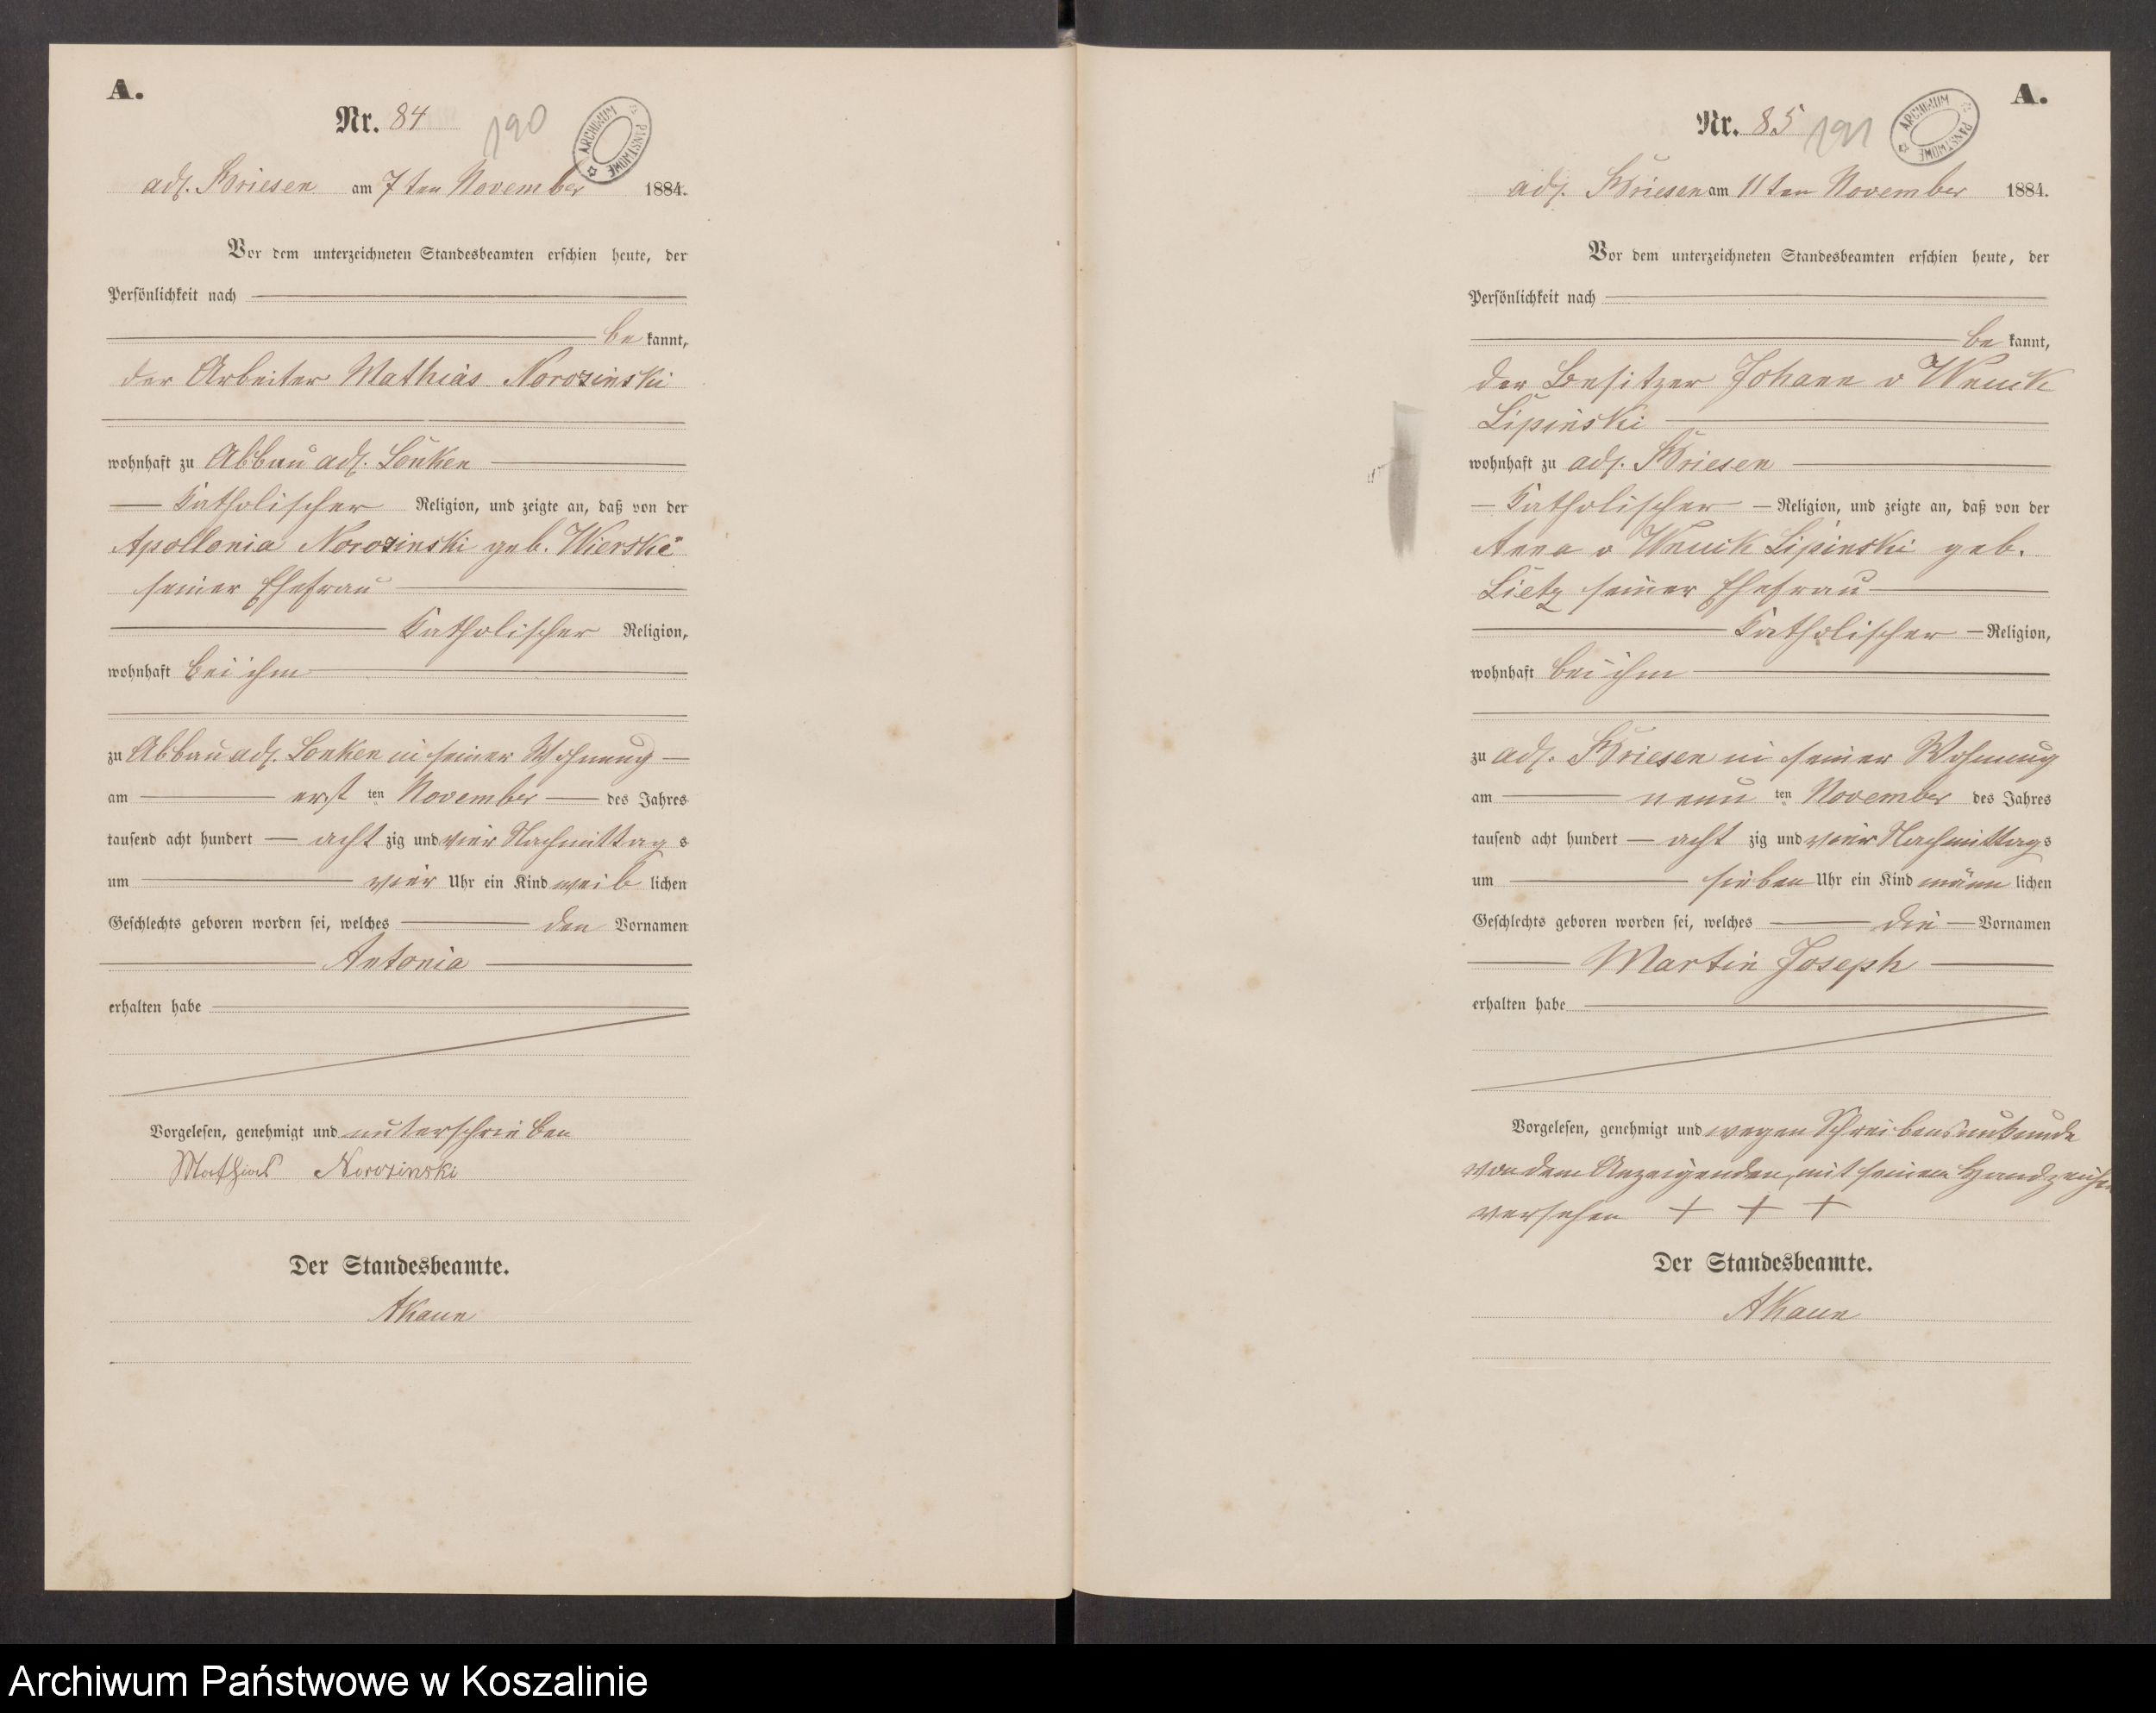 A.
Nr. 84
190
ARCHIWUM PAŃSTWOWE
adl. Briesen am 7ten November 1884.
Vor dem unterzeichneten Standesbeamten erschien heute, der
Persönlichkeit nach
be kannt,
der Arbeiter Mathias Norosinski
wohnhaft zu Abbau adl. Lonken
Katholischer Religion, und zeigte an, daß von der
Apollonia Norosinski geb. Wierski
seiner Ehefrau
Katholischer Religion,
wohnhaft bei ihm
zu Abbau adl. Lonken in seiner Wohnung
am erst ten November des Jahres
tausend acht hundert acht zig und vier Nachmittag s
um vier Uhr ein Kind weib lichen
Geschlechts geboren worden sei, welches den Vornamen
Antonia
erhalten habe
Vorgelesen, genehmigt und unterschrieben
Mathias Norosinski
Der Standesbeamte.
AKaun
A.
Nr. 85
191
ARCHIWUM PAŃSTWOWE
adl. Briesen am 11ten November 1884.
Vor dem unterzeichneten Standesbeamten erschien heute, der
Persönlichkeit nach
be kannt,
der Besitzer Johann v Wnuck
Lipinski
wohnhaft zu adl. Briesen
Katholischer Religion, und zeigte an, daß von der
Anna v Wnuck Lipinski geb.
Lietz seiner Ehefrau
Katholischer Religion,
wohnhaft bei ihm
zu adl. Briesen in seiner Wohnung
am neun ten November des Jahres
tausend acht hundert acht zig und vier Nachmittags
um sieben Uhr ein Kind männ lichen
Geschlechts geboren worden sei, welches die Vornamen
Martin Joseph
erhalten habe
Vorgelesen, genehmigt und wegen Schreibensunkunde
von dem Anzeigenden, mit seinem Handzeichen
versehen + + +
Der Standesbeamte.
AKaun
Archiwum Państwowe w Koszalinie